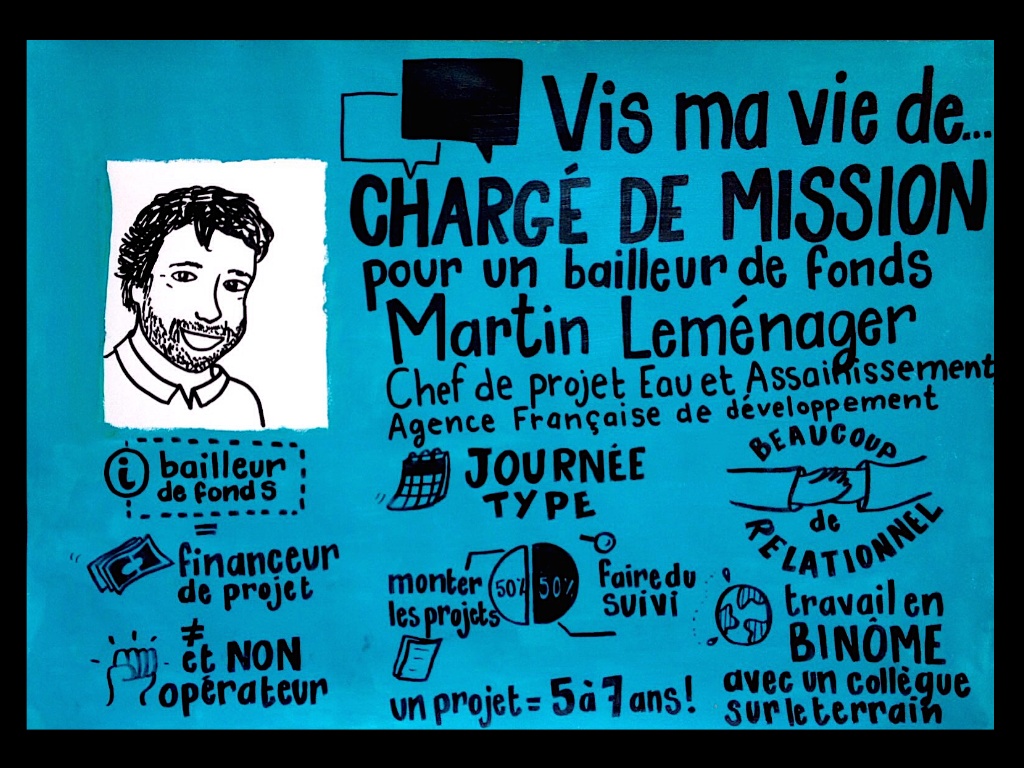 Vis ma vie de...
CHARGÉ DE MISSION
pour un bailleur de fonds
Martin Leménager
Chef de projet Eau et Assainissement
Agence Française de développement
i bailleur
de fonds
=
financeur
de projet
≠
et NON
opérateur
JOURNÉE
TYPE
monter
les projets
50%
50%
faire du
suivi
un projet = 5 à 7 ans!
BEAUCOUP
de
RELATIONNEL
travail en
BINÔME
avec un collègue
sur le terrain